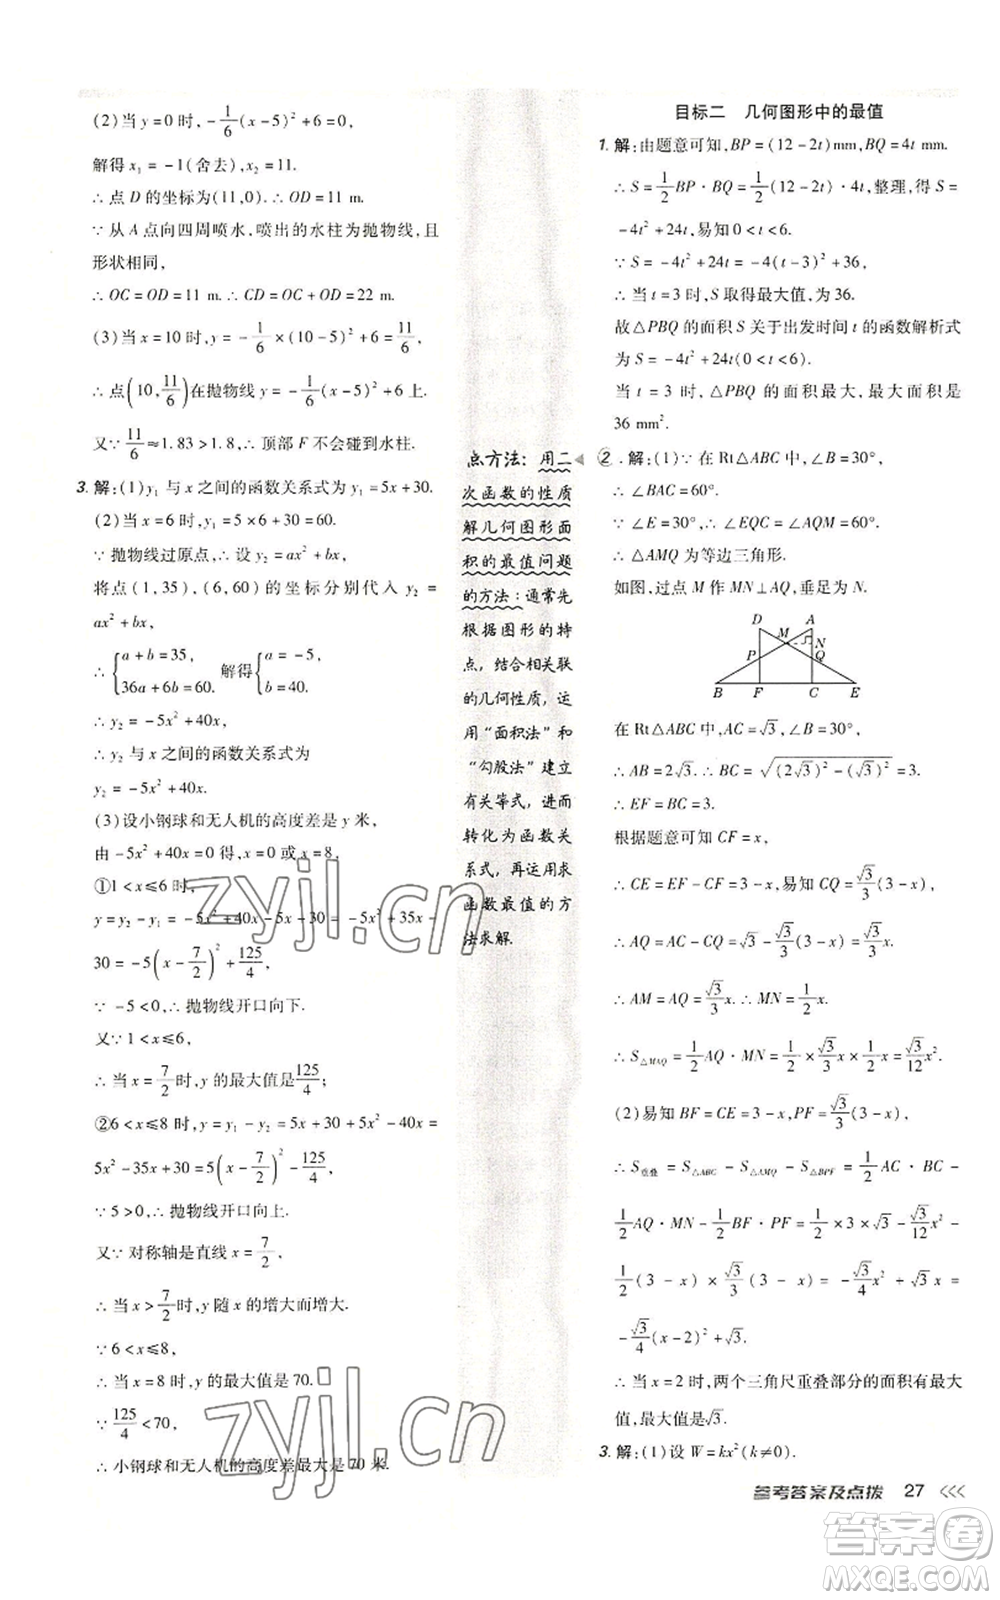 (2)当 y=0 时,-1/6(x-5)²+6=0,
解得 x₁=-1(舍去),x₂=11.
∴点 D 的坐标为(11,0).∴OD=11 m.
∵从 A 点向四周喷水,喷出的水柱为抛物线,且
形状相同,
∴OC=OD=11 m.∴CD=OC+OD=22 m.
(3)当 x=10 时,y=-1/6×(10-5)²+6=11/6,
∴点(10,11/6)在抛物线 y=-1/6(x-5)²+6 上.
又∵11/6≈1.83>1.8,∴顶部 F 不会碰到水柱.
3.解:(1)y₁ 与 x 之间的函数关系式为 y₁=5x+30.
(2)当 x=6 时,y₁=5×6+30=60.
∵抛物线过原点,∴设 y₂=ax²+bx,
将点(1,35),(6,60)的坐标分别代入 y₂=
ax²+bx,
∴{a+b=35, 36a+6b=60. 解得{a=-5, b=40.
∴y₂=-5x²+40x.
∴y₂ 与 x 之间的函数关系式为
y₂=-5x²+40x.
(3)设小钢球和无人机的高度差是 y 米,
由 -5x²+40x=0 得,x=0 或 x=8,
①1<x≤6 时,
y=y₂-y₁=-5x²+40x-5x-30=-5x²+35x-
30=-5(x-7/2)²+125/4,
∵-5<0,∴抛物线开口向下.
又∵1<x≤6,
∴当 x=7/2时,y 的最大值是125/4;
②6<x≤8 时,y=y₁-y₂=5x+30+5x²-40x=
5x²-35x+30=5(x-7/2)²-125/4,
∵5>0,∴抛物线开口向上.
又∵对称轴是直线 x=7/2,
∴当 x>7/2时,y 随 x 的增大而增大.
∵6<x≤8,
∴当 x=8 时,y 的最大值是 70.
∵125/4<70,
∴小钢球和无人机的高度差最大是 70 米.
点方法:用二
次函数的性质
解几何图形面
积的最值问题
的方法:通常先
根据图形的特
点,结合相关联
的几何性质,运
用“面积法”和
“勾股法”建立
有关等式,进而
转化为函数关
系式,再运用求
函数最值的方
法求解.
目标二 几何图形中的最值
1.解:由题意可知,BP=(12-2t)mm,BQ=4t mm.
∴S=1/2BP·BQ=1/2(12-2t)·4t,整理,得 S=
-4t²+24t,易知 0<t<6.
∵S=-4t²+24t=-4(t-3)²+36,
∴当 t=3 时,S 取得最大值,为 36.
故△PBQ 的面积 S 关于出发时间 t 的函数解析式
为 S=-4t²+24t(0<t<6).
当 t=3 时,△PBQ 的面积最大,最大面积是
36 mm².
2.解:(1)∵在 Rt△ABC 中,∠B=30°,
∴∠BAC=60°.
∵∠E=30°,∴∠EQC=∠AQM=60°.
∴△AMQ 为等边三角形.
如图,过点 M 作 MN⊥AQ,垂足为 N.
D A
M N
P Q
B F C E
在 Rt△ABC 中,AC=√3,∠B=30°,
∴AB=2√3.∴BC=√((2√3)²-(√3)²)=3.
∴EF=BC=3.
根据题意可知 CF=x,
∴CE=EF-CF=3-x,易知 CQ=√3/3(3-x),
∴AQ=AC-CQ=√3-√3/3(3-x)=√3/3x.
∴AM=AQ=√3/3x.∴MN=1/2x.
∴S△MAQ=1/2AQ·MN=1/2×√3/3x×1/2x=√3/12x².
(2)易知 BF=CE=3-x,PF=√3/3(3-x),
∴S重叠=S△ABC-S△AMQ-S△BPF=1/2AC·BC-
1/2AQ·MN-1/2BF·PF=1/2×3×√3-√3/12x²-
1/2(3-x)×√3/3(3-x)=-√3/4x²+√3x=
-√3/4(x-2)²+√3.
∴当 x=2 时,两个三角尺重叠部分的面积有最大
值,最大值是√3.
3.解:(1)设 W=kx²(k≠0).
参考答案及点拨 27
zyjl.cn
zyjl.cn
答案卷
MXQE.COM